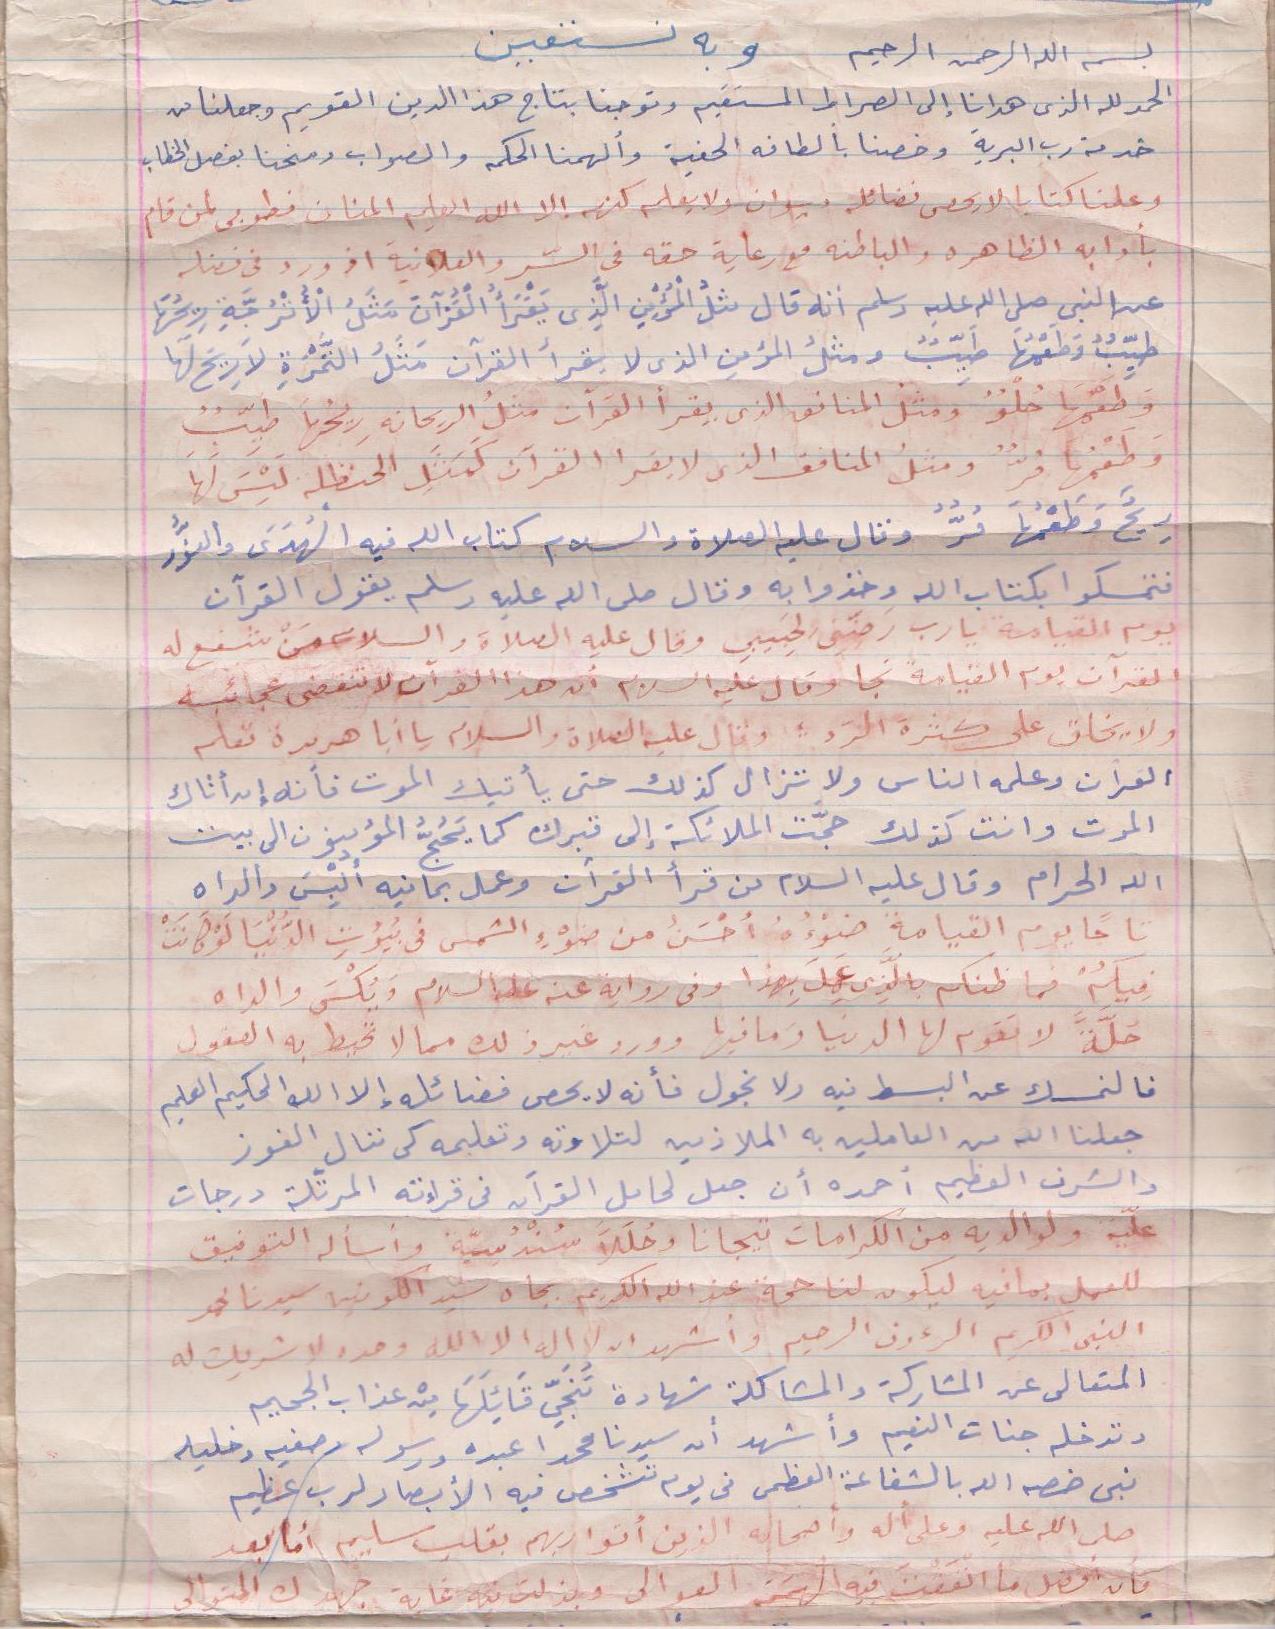 بسم الله الرحمن الرحيم وبه نستعين
الحمد لله الذى هدانا إلى الصراط المستقيم وتوجنا بتاج هذا الدين القويم وجعلنا من
خدمة رب البرية وخصنا بألطافه الخفية وألهمنا الحكمه والصواب ومنحنا بفصل الخطاب
وعلمنا كتابا لا يحصى فضائله ديوان ولا يعلم كنهه الا الله العليم المنان فطوبى لمن قام
بأدابه الظاهره والباطنه مع رعاية حقه فى السّر والعلانية اذ ورد فى فضله
عن النبى صلى الله عليه وسلم أنه قال مثلُ الْمُؤْمِنِ الَّذِى يَقْرَأُ الْقُرْآنَ مَثَلُ الْأُتْرُجَّةِ رِيحُهَا
طَيِّبٌ وَطَعْمُهَا طَيِّبٌ ومثلُ المؤمنِ الذى لا يقرأ القرآن مَثَلُ التَّمْرَةِ لَا رِيحَ لَهَا
وَطَعْمُهَا حُلْوٌ ومثلُ المنافق الذى يقرأ القرآن مثلُ الريحانه رِيحُهَا طَيِّبٌ
وَطَعْمُهَا مُرٌّ ومثلُ المنافق الذى لا يقرا القرآن كَمَثَلِ الحنظله لَيْسَ لَهَا
رِيحٌ وَطَعْمُهَا مُرٌّ وقال عليه الصلاة والسلام كتاب الله فيه الْهُدَى والنُّورُ
فتمسكوا بكتاب الله وخذوا به وقال صلى الله عليه وسلم يقول القرآن
يوم القيامة يارب رَضِّنِى لِحَبِيبِي وقال عليه الصلاة والسلام مَنْ شفع له
القرآن يوم القيامة نجا وقال عليه السلام أن هذا القرآن لا تنقضى عجائبه
ولا يخلق على كثرة الرّد وقال عليه الصلاة والسلام يا أبا هريرة تعلم
القران وعلمه الناس ولا تزال كذلك حتى يأتيك الموت فأنه إن أتاك
الموت وانت كذلك حجَّت الملائكة إلى قبرك كما يَحُجُّ المؤمنون الى بيت
الله الحرام وقال عليه السلام من قرأ القرآن وعمل بما فيه أُلْبِسَ والداه
تاجًا يوم القيامة ضَوْءُهُ أَحْسَنُ من ضَوْءِ الشمس فى بُيُوتِ الدُّنْيَا لَوْ كَانَتْ
فِيكُمْ فما ظنكم بالَّذِى عَمِلَ بِهذا وفى رواية عنه عليه السلام وَيُكْسَى والداه
حُلَّةً لا تقوم لها الدنيا وَما فيها وورد غير ذلك مما لا تحيط به العقول
فالنمسك عن البسط فيه ولا نجول فأنه لا يحصى فضائله إلا الله الحكيم العليم
جعلنا الله من العاملين به الملازمين لتلاوته وتعليمه كى ننال الفوز
والشرف العظيم أحمده أن جعل لحامل القرآن فى قراءته المرتّلة درجات
عليّة ولوالديه من الكرامات تيجانا وحُلَلاً سُنْدُسِيّة وأسأله التوفيق
للعمل بما فيه ليكون لنا حجة عند الله الكريم بجاه سيد الكونين سيدنا محمد
النبى الكريم الرءوف الرحيم وأشهد ان لا اله الا الله وحده لا شريك له
المتعالى عن المشاركة والمشاكلة شهادة تُنَجِّى قَائِلَهَا مِنْ عذاب الجحيم
وتدخله جنات النعيم وأشهد أن سيدنا محمدا عبده ورسوله وصفيه وخليله
نبى خصه الله بالشفاعة العظمى فى يوم تشخص فيه الأبصار لرب عظيم
صلى الله عليه وعلى أله وأصحابه الذين أتوا ربهم بقلب سليم أما بعد
فأن أفضل ما انْفَقْتَ فيه الهِمَمَ العوالى وبذلت فيه غاية جهدك المتوالى